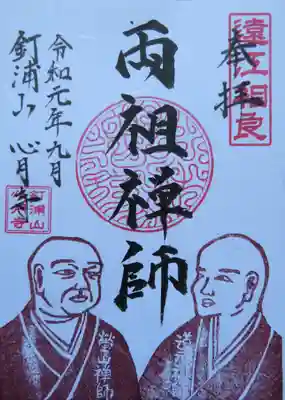 遠江相良
奉拝
両祖禅師
令和元年九月
釘浦山 心月寺
釘浦山
心月寺
道元禅師
瑩山禅師